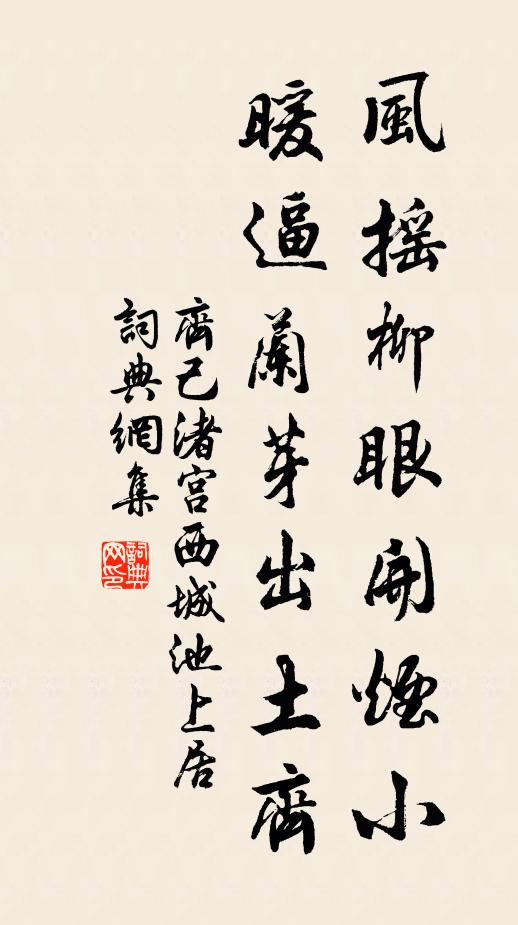 風揺柳眼開煙小
暖逼蘭芽出土齊
齊己渚宮西城池上居
詞典網集
詞典
网印